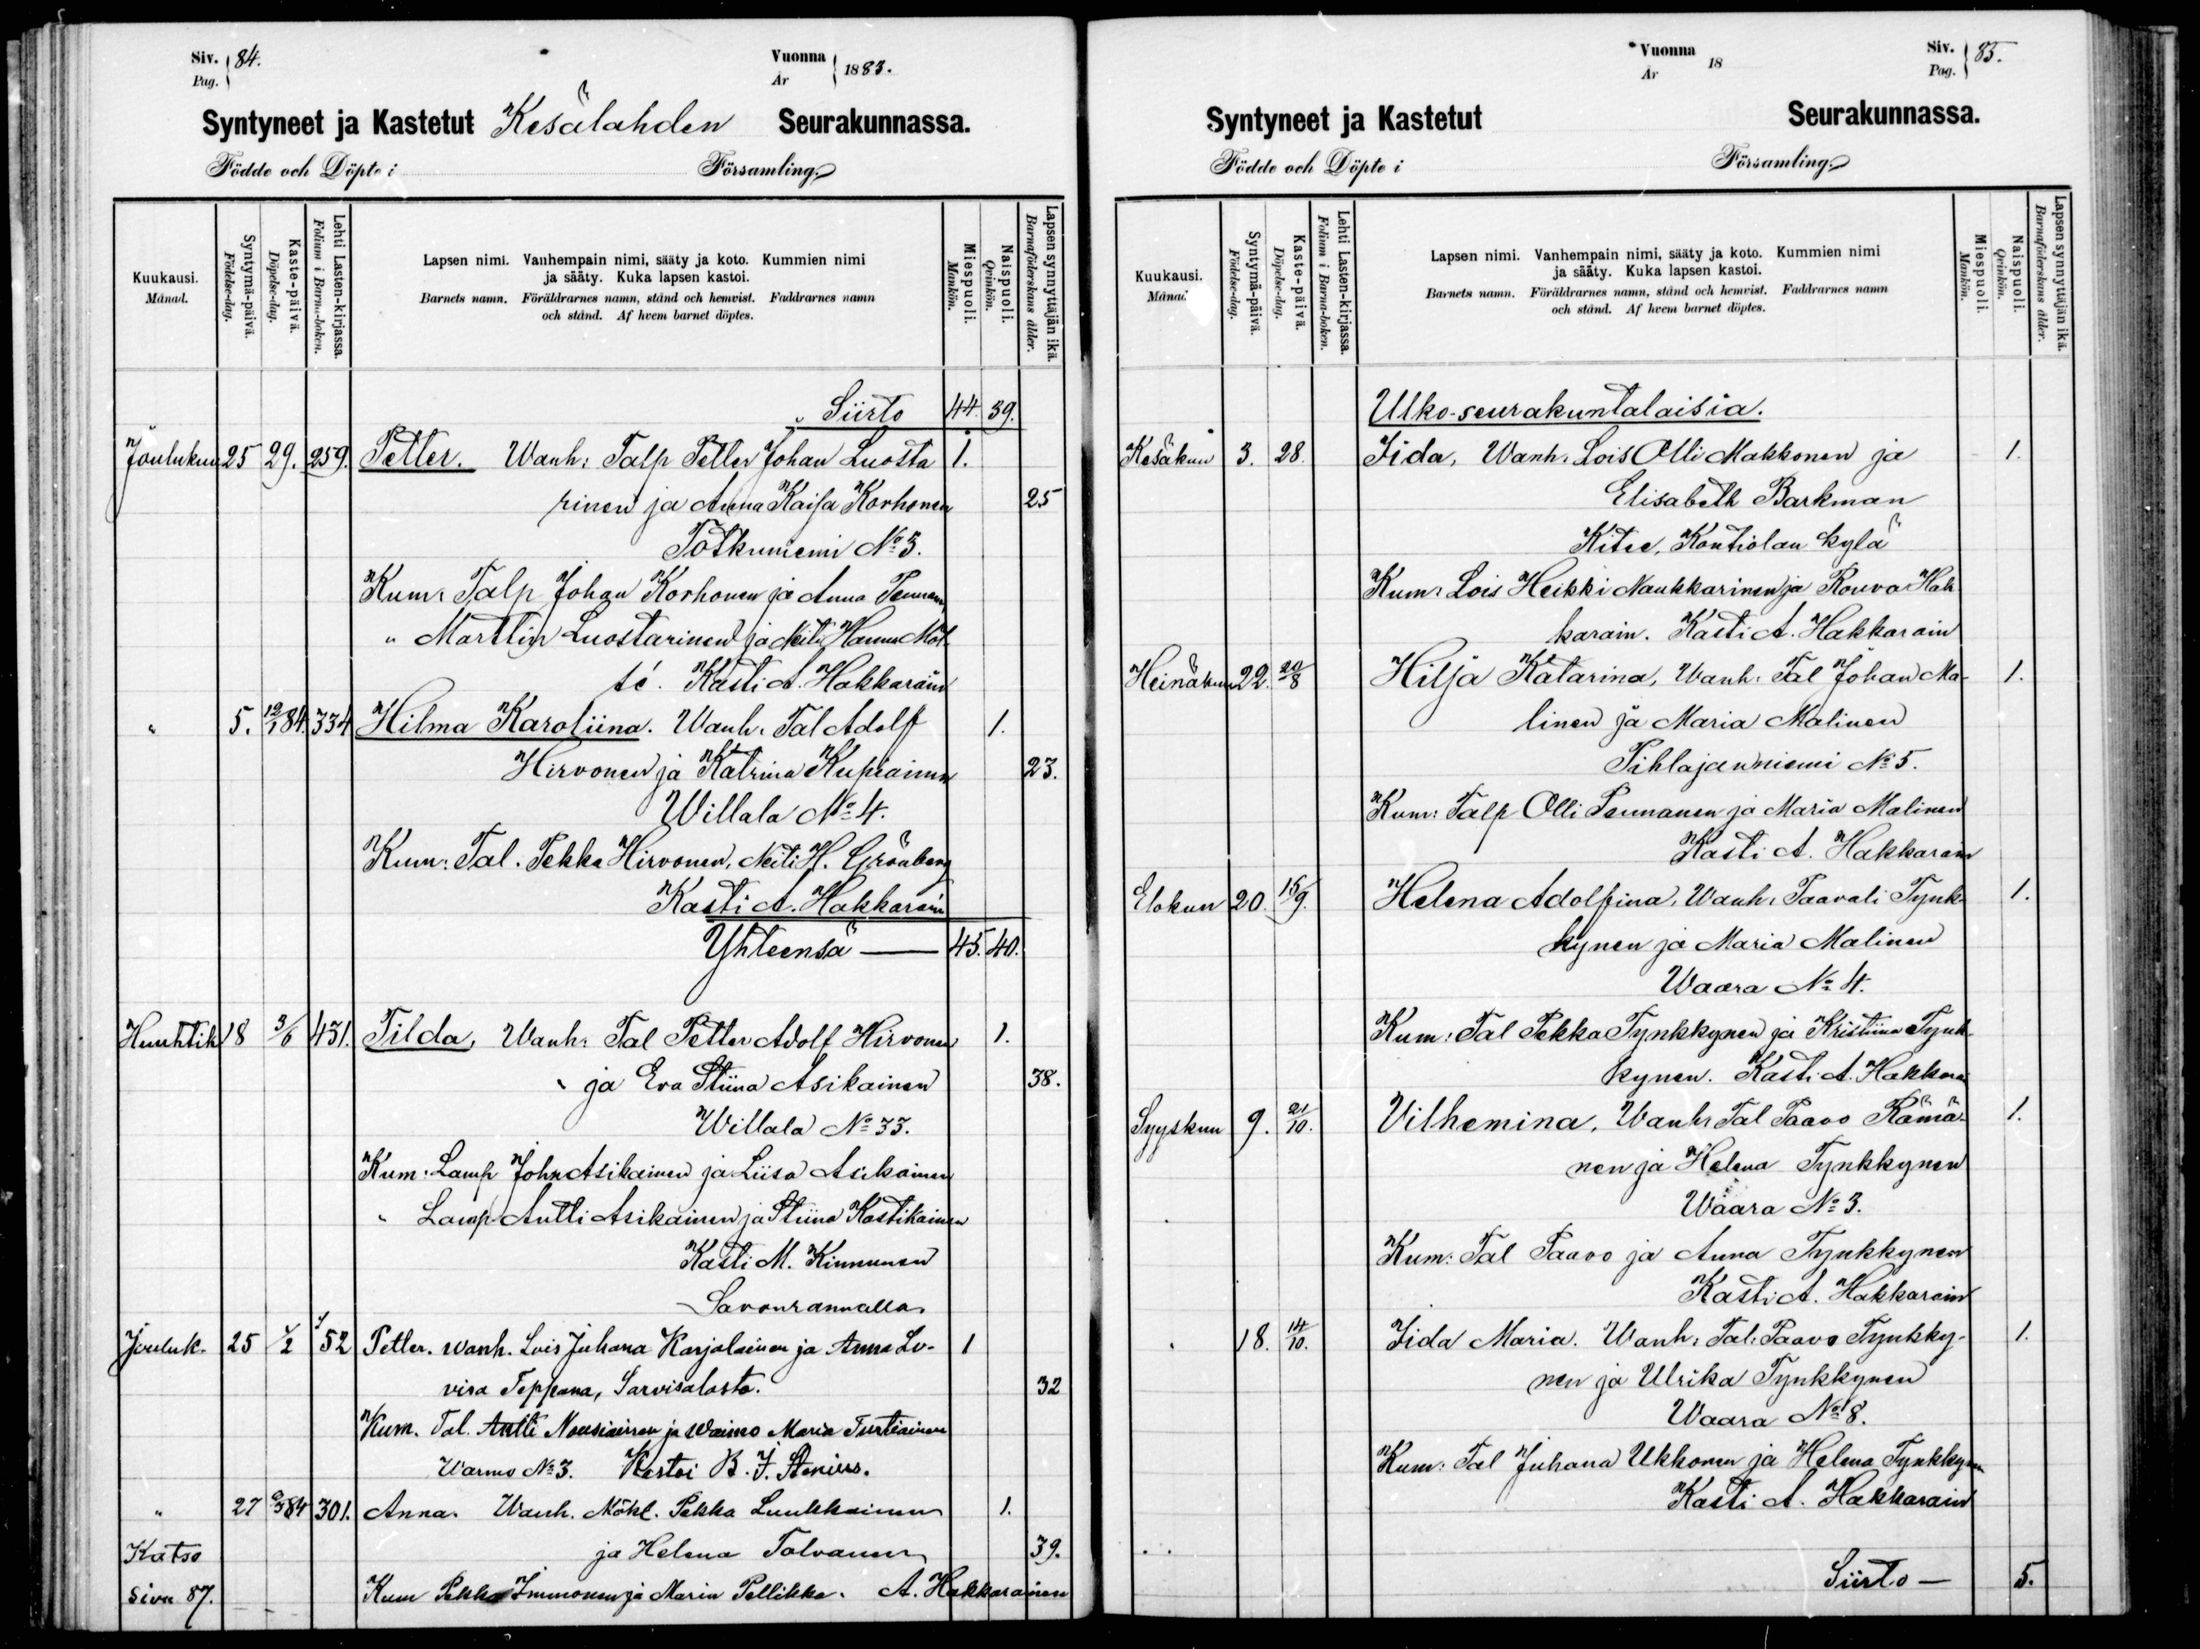 Siv. 84.
Pag.
Vuonna 1883.
År
Syntyneet ja Kastetut Kesälahden Seurakunnassa.
Födde och Döpte i Församling.
Kuukausi.
Månad.
Syntymä-päivä.
Födelse-dag.
Kaste-päivä.
Döpelse-dag.
Lehti Lasten-kirjassa.
Folium i Barna-boken.
Lapsen nimi. Vanhempain nimi, sääty ja koto. Kummien nimi
ja sääty. Kuka lapsen kastoi.
Barnets namn. Föräldrarnes namn, stånd och hemvist. Faddrarnes namn
och stånd. Af hvem barnet döptes.
Miespuoli.
Mankön.
Naispuoli.
Qvinkön.
Lapsen synnyttäjän ikä.
Barnaföderskans ålder.
Siirto 44. 39.
Joulukuu 25 29. 259. Petter. Wanh: Talp Petter Johan Luosta 1.
rinen ja Anna Kaisa Korhonen 25
Totkuniemi No 3.
Kum: Talp Johan Korhonen ja Anna
" Martti Luostarinen ja Neiti Hanna
Kasti A. Hakkarain
" 5. 12/1 84. 334 Hilma Karoliina. Wanh. Tal Adolf 1.
Hirvonen ja Katrina Kupiainen 23.
Willala No 4.
Kum: Tal. Pekka Hirvonen, Neiti H. Grönberg
Kasti A. Hakkarain
Yhteensä — 45. 40.
Huhtik 18 3/6 431. Tilda, Wanh: Tal Petter Adolf Hirvonen 1.
ja Eva Stiina Asikainen 38.
Willala No 33.
Kum: Lamp John Asikainen ja Liisa Asikainen
" Lamp Antti Asikainen ja Stiina Kostikainen
Kasti M. Kinnunen
Savonrannalla.
Jouluk. 25 1/2 52 Petter. Wanh. Lois Juhana Karjalainen ja Anna Lo- 1
visa Teppana, Sarvisalosta. 32
Kum. Tal. Antti Nousiainen ja Waimo Maria Turtiainen
Warmo No 3. Kastoi B. J. Stenius.
" 27 84 301. Anna. Wanh. Mökl. Pekka Luukkainen 1.
Katso ja Helena Tolvanen 39.
sivu 87. Kum Pekka Immonen ja Maria Pellikka. A. Hakkarainen
Vuonna 18
År
Siv. 85.
Pag.
Syntyneet ja Kastetut Seurakunnassa.
Födde och Döpte i Församling.
Kuukausi.
Månad
Syntymä-päivä.
Födelse-dag.
Kaste-päivä.
Döpelse-dag.
Lehti Lasten-kirjassa.
Folium i Barna-boken.
Lapsen nimi. Vanhempain nimi, sääty ja koto. Kummien nimi
ja sääty. Kuka lapsen kastoi.
Barnets namn. Föräldrarnes namn, stånd och hemvist. Faddrarnes namn
och stånd. Af hvem barnet döptes.
Miespuoli.
Mankön.
Naispuoli.
Qvinkön.
Lapsen synnyttäjän ikä.
Barnaföderskans ålder.
Ulko-seurakuntalaisia.
Kesäkuu 3. 28. Iida, Wanh. Lois Olli Makkonen ja 1.
Elisabeth Barkman
Kitee, Kontiolan kylä
Kum: Lois Heikki Naukkarinen ja Rouva Hak
karain. Kasti A. Hakkarain
Heinäkuu 22. 20/8 Hilja Katarina, Wanh. Tal Johan Ma- 1.
linen ja Maria Malinen
Pihlajanniemi No 5.
Kum: Talp Olli Pennanen ja Maria Malinen
Kasti A. Hakkarain
Elokuu 20. 15/9. Helena Adolfina, Wanh: Paavali Tynk- 1.
kynen ja Maria Malinen
Waara No 4.
Kum: Tal Pekka Tynkkynen ja Kristiina Tynk-
kynen. Kasti A. Hakkarai
Syyskuu 9. 21/10. Vilhemina, Wanh: Tal Paavo Rämä- 1.
nen ja Helena Tynkkynen
Waara No 3.
Kum: Tal Paavo ja Anna Tynkkynen
Kasti A. Hakkarain
" 18. 14/10. Iida Maria. Wanh: Tal: Paavo Tynkky- 1.
nen ja Ulrika Tynkkynen
Waara No 8.
Kum: Tal Juhana Ukkonen ja Helena Tynkkynen
Kasti A. Hakkarain
Siirto — 5.